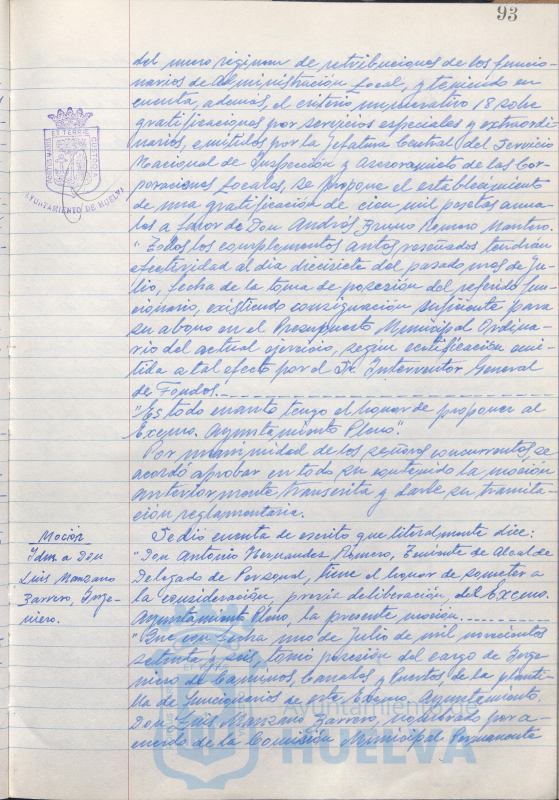 93
del nuevo régimen de retribuciones de los funcio-
narios de Administración Local, y teniendo en
cuenta, además, el criterio numerativo 18 sobre
gratificaciones por servicios especiales y extraordi-
narios, emitidos por la Jefatura Central del Servicio
Nacional de Inspección y Asesoramiento de las Cor-
poraciones Locales, se propone el establecimiento
de una gratificación de cien mil pesetas anua-
les a favor de Don Andrés Bruno Romero Mantero.
"Todos los complementos antes reseñados tendrán
efectividad al día diecisiete del pasado mes de Ju-
lio, fecha de la toma de posesión del referido fun-
cionario, existiendo consignación suficiente para
su abono en el Presupuesto Municipal Ordina-
rio del actual ejercicio, según certificación emi-
tida a tal efecto por el Sr. Interventor General
de Fondos.
"Es todo cuanto tengo el honor de proponer al
Excmo. Ayuntamiento Pleno".
Por unanimidad de los señores concurrentes, se
acordó aprobar en todo su contenido la moción
anteriormente transcrita y darle su tramita-
ción reglamentaria.
Moción
Idm. a Don
Luis Manzano
Barrero, Inge-
niero.
Se dio cuenta de escrito que literalmente dice:
"Don Antonio Hernandez Romero, Teniente de Alcalde
Delegado de Personal, tiene el honor de someter a
la consideración, previa deliberación, del Excmo.
Ayuntamiento Pleno, la presente moción.
"Que con fecha uno de Julio de mil novecientos
setenta y seis, tomó posesión del cargo de Inge-
niero de Caminos, Canales y Puertos de la planti-
lla de funcionarios de este Excmo. Ayuntamiento.
Don Luis Manzano Barrero, nombrado por a-
cuerdo de la Comisión Municipal Permanente
AYUNTAMIENTO DE HUELVA
Ayuntamiento de
HUELVA